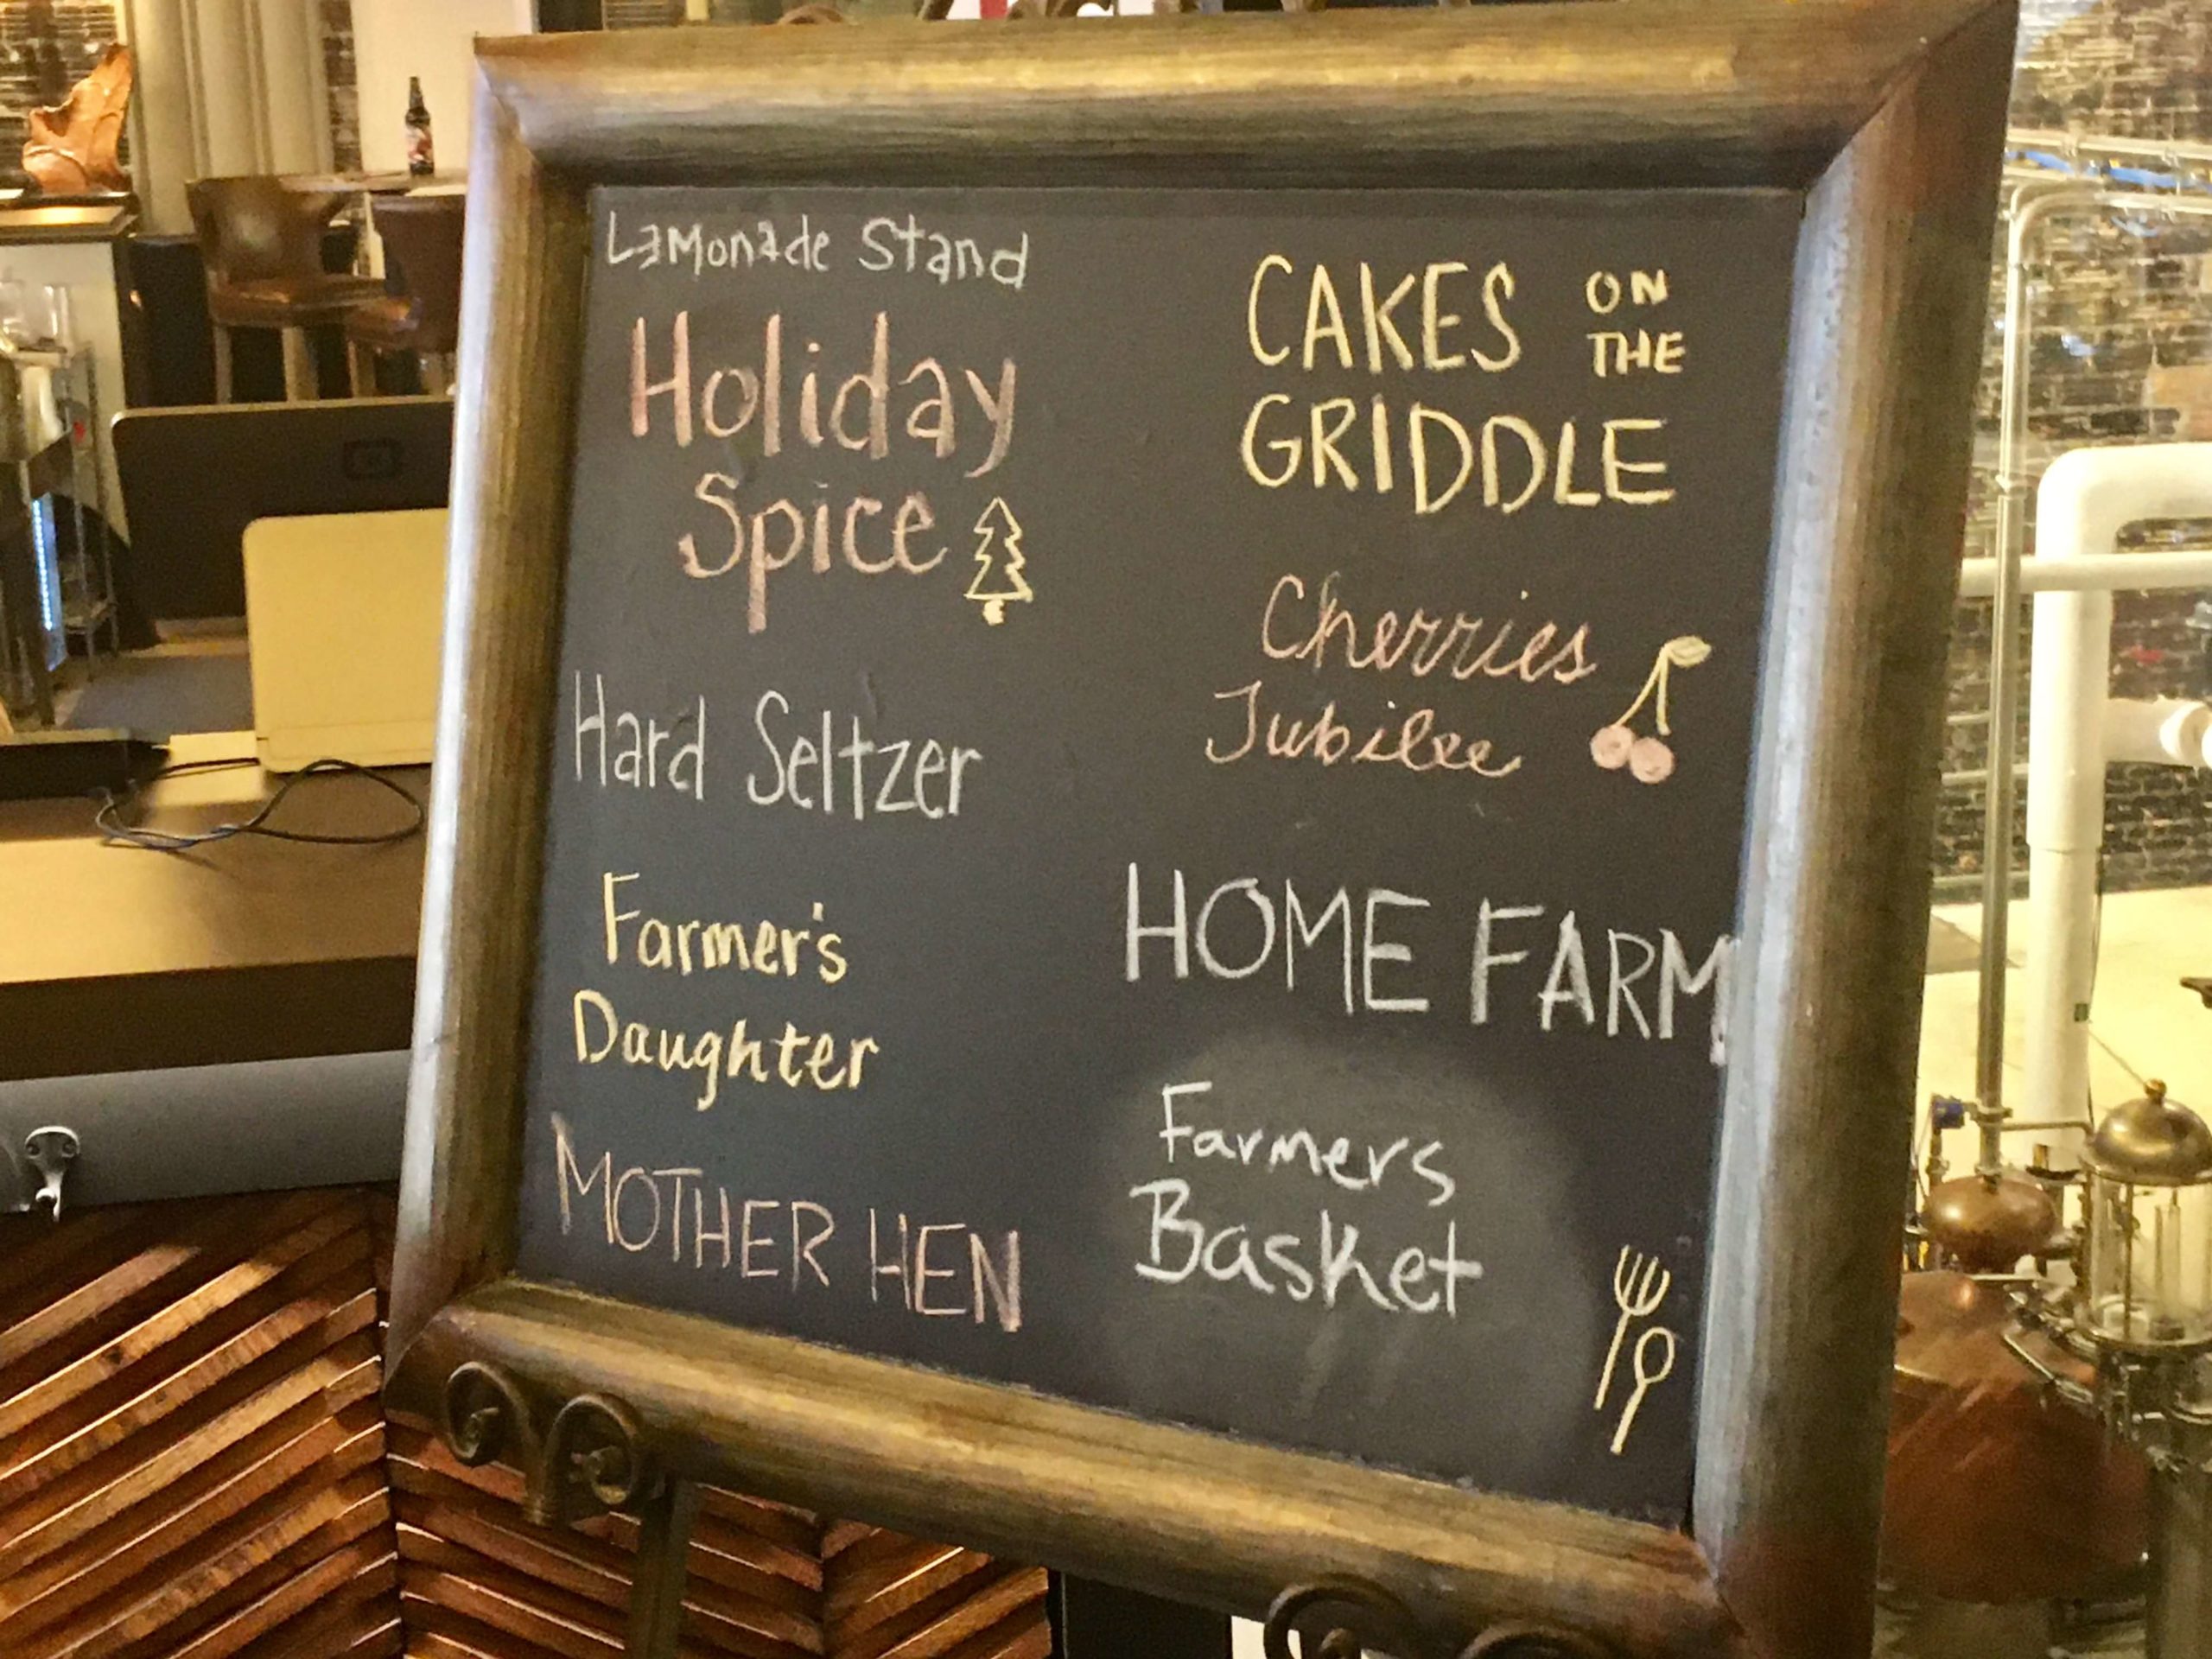 Lemonade Stand
Holiday
Spice
Hard Seltzer
Farmer's
Daughter
MOTHER HEN
CAKES ON
THE
GRIDDLE
Cherries
Jubilee
HOME FARM
Farmers
Basket